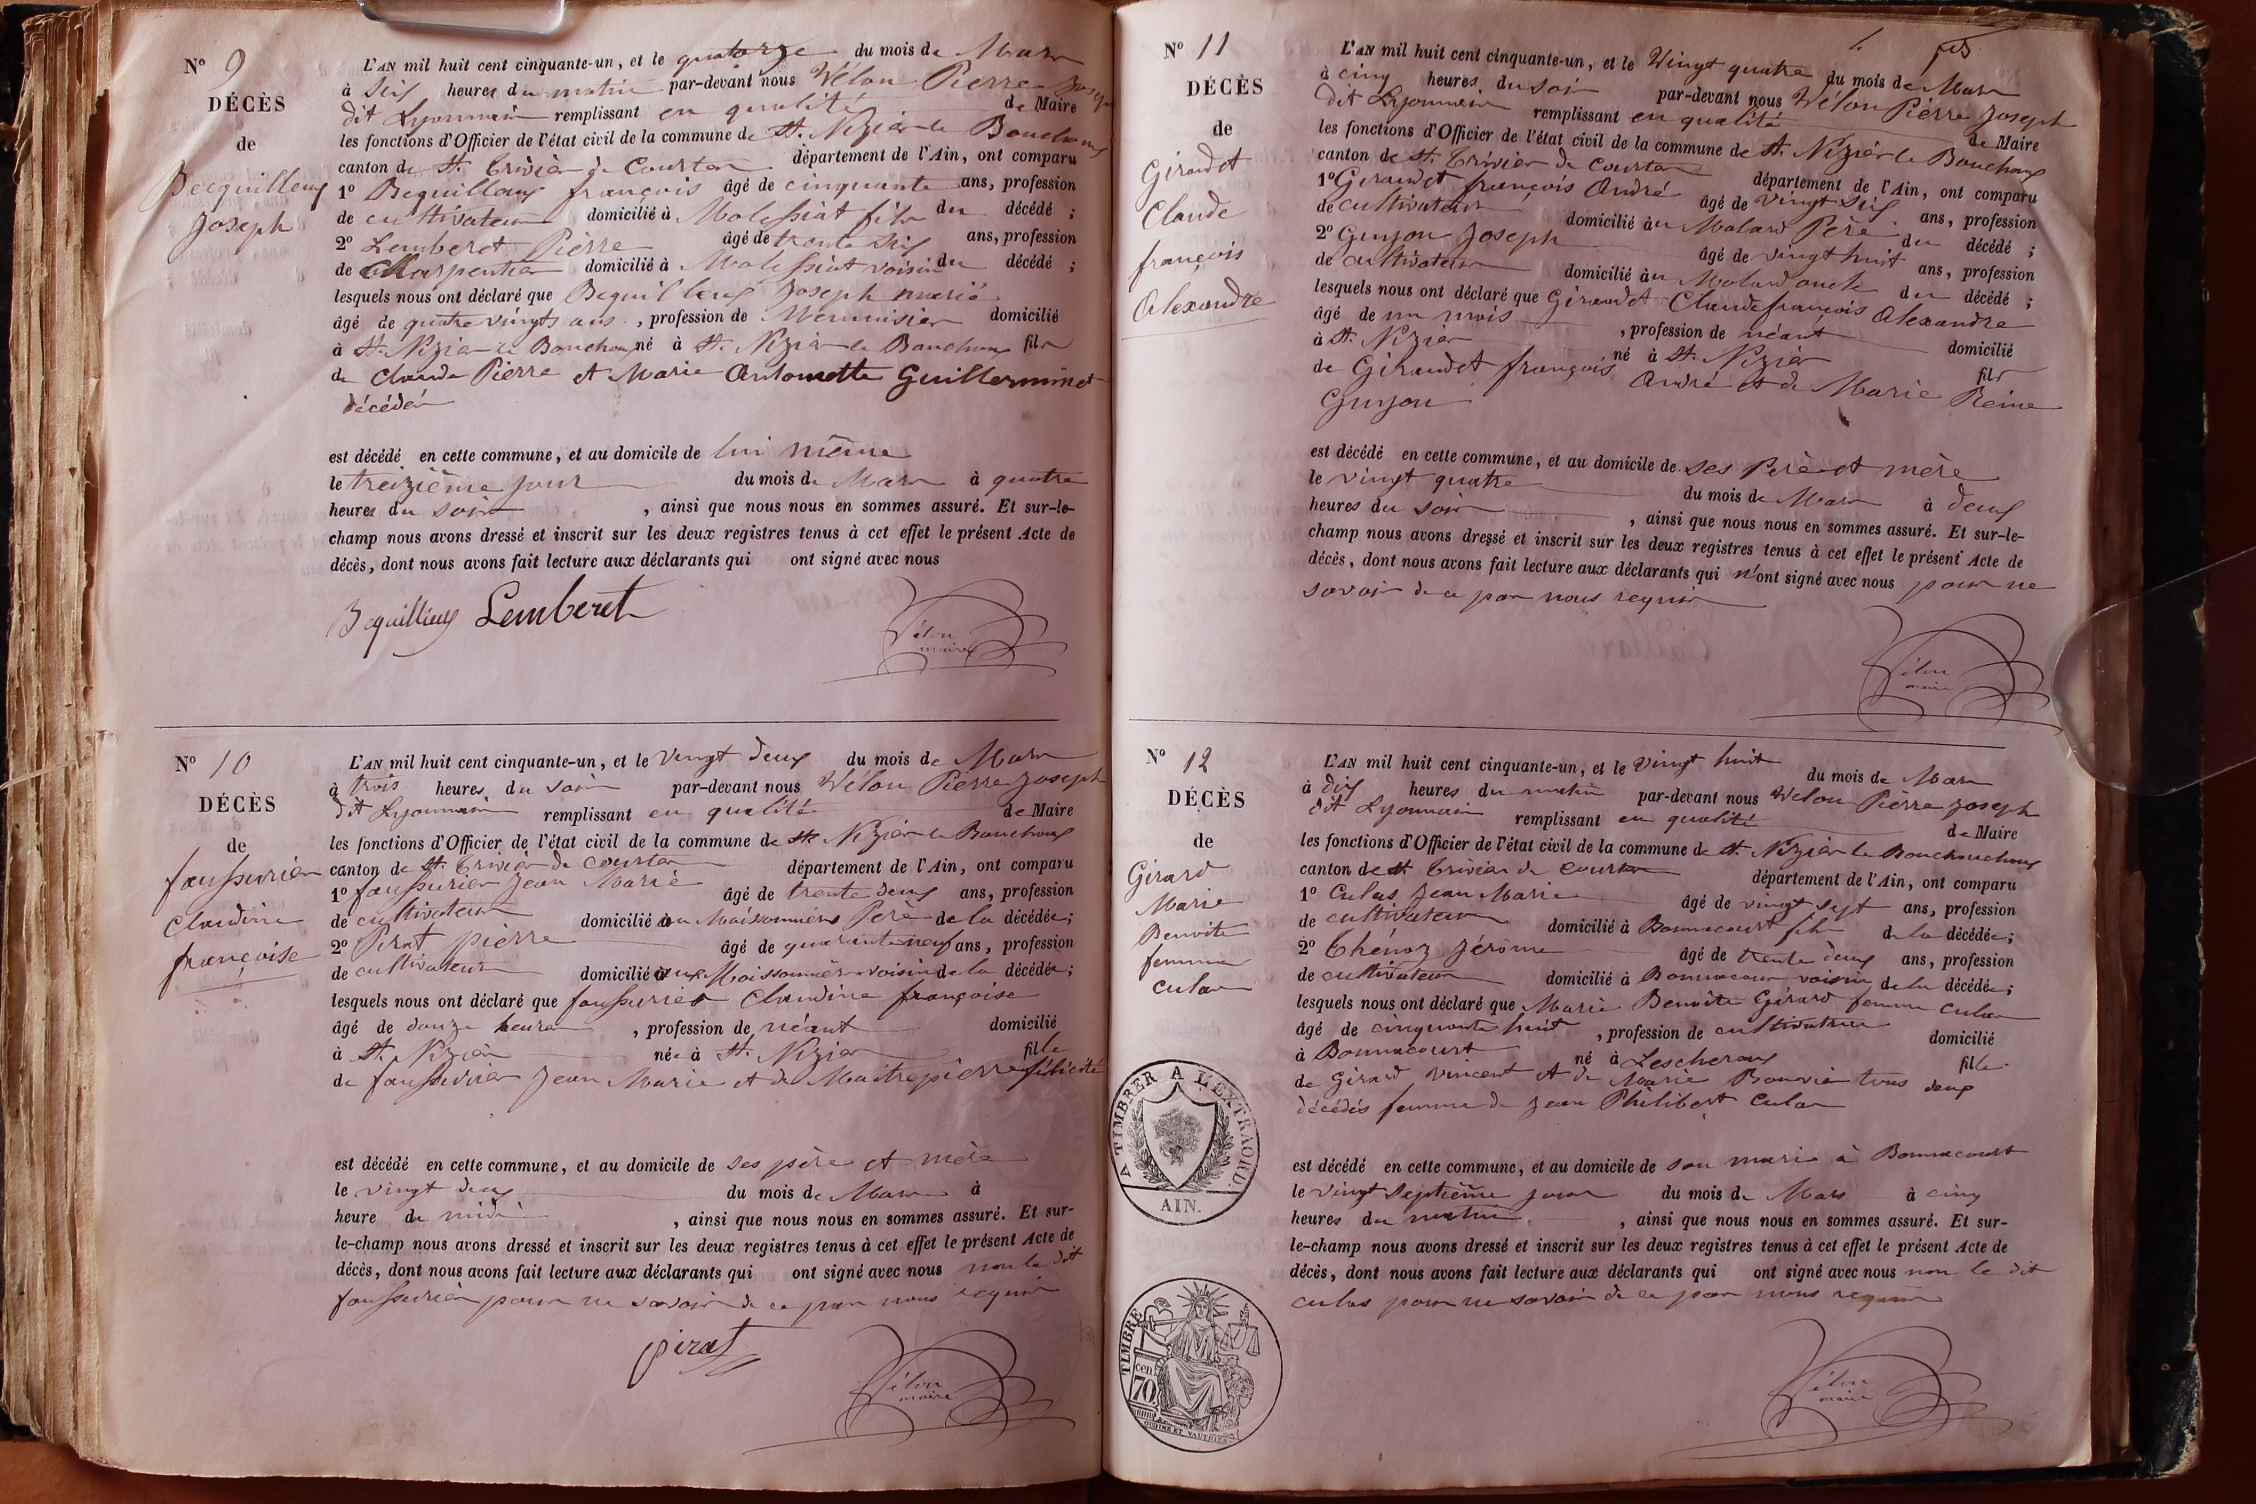 Nº 9
DÉCÈS
de
Becquilleux
Joseph
L'AN mil huit cent cinquante-un, et le quatorze du mois de Mars
à Six heures du matin par-devant nous Vélon Pierre Joseph
dit Lyonnais remplissant en qualité de Maire
les fonctions d'Officier de l'état civil de la commune de St. Nizier le Bouchoux
canton de St. Trivier de Courtes département de l'Ain, ont comparu
1º Bequilleux françois âgé de cinquante ans, profession
de cultivateur domicilié à Molessiat fils du décédé ;
2º Lemberet Pierre âgé de trente Six ans, profession
de Charpentier domicilié à Molessiat voisin du décédé ;
lesquels nous ont déclaré que Bequilleux Joseph marié
âgé de quatre vingts ans, profession de Menuisier domicilié
à St. Nizier le Bouchoux né à St. Nizier le Bouchoux fils
de Claude Pierre et Marie Antoinette Guillerminet
décédés
est décédé en cette commune, et au domicile de lui même
le treizième jour du mois de Mars à quatre
heures du soir , ainsi que nous nous en sommes assuré. Et sur-le-
champ nous avons dressé et inscrit sur les deux registres tenus à cet effet le présent Acte de
décès, dont nous avons fait lecture aux déclarants qui ont signé avec nous
Bequilleux Lemberet
Vélon
maire
Nº 10
DÉCÈS
de
fausurier
Claudine
françoise
L'AN mil huit cent cinquante-un, et le vingt deux du mois de Mars
à trois heures du soir par-devant nous Vélon Pierre Joseph
dit Lyonnais remplissant en qualité de Maire
les fonctions d'Officier de l'état civil de la commune de St. Nizier le Bouchoux
canton de St. Trivier de Courtes département de l'Ain, ont comparu
1º faussurier Jean Marie âgé de trente deux ans, profession
de cultivateur domicilié au Maisonnier Père de la décédée;
2º Pirat pierre âgé de quarante neuf ans, profession
de cultivateur domicilié aux Moissonnier voisin de la décédée;
lesquels nous ont déclaré que faussurier Claudine françoise
âgé de douze heures , profession de néant domicilié
à St. Nizier née à St. Nizier fille
de faussurier Jean Marie et de Maitrepierre félicité
est décédé en cette commune, et au domicile de ses père et mère
le vingt deux du mois de Mars à
heure de midi , ainsi que nous nous en sommes assuré. Et sur-
le-champ nous avons dressé et inscrit sur les deux registres tenus à cet effet le présent Acte de
décès, dont nous avons fait lecture aux déclarants qui ont signé avec nous non le dit
faussurier pour ne savoir de ce par nous requis
pirat
Vélon
maire
Nº 11
DÉCÈS
de
Giraudet
Claude
françois
Alexandre
L'AN mil huit cent cinquante-un, et le Vingt quatre du mois de Mars
à cinq heures du soir par-devant nous Vélon Pierre Joseph
dit Lyonnais remplissant en qualité de Maire
les fonctions d'Officier de l'état civil de la commune de St. Nizier le Bouchoux
canton de St. Trivier de Courtes département de l'Ain, ont comparu
1º Giraudet françois André âgé de vingt Six ans, profession
de cultivateur domicilié au Molard Père du décédé ;
2º Guyon Joseph âgé de vingt huit ans, profession
de cultivateur domicilié au Molard oncle du décédé ;
lesquels nous ont déclaré que Giraudet Claude françois Alexandre
âgé de un mois , profession de néant domicilié
à St. Nizier né à St. Nizier fils
de Giraudet françois André et de Marie Reine
Guyon
est décédé en cette commune, et au domicile de ses Père et mère
le vingt quatre du mois de Mars à deux
heures du soir , ainsi que nous nous en sommes assuré. Et sur-le-
champ nous avons dressé et inscrit sur les deux registres tenus à cet effet le présent Acte de
décès, dont nous avons fait lecture aux déclarants qui n'ont signé avec nous pour ne
savoir de ce par nous requis
Vélon
maire
Nº 12
DÉCÈS
de
Girard
Marie
Benoite
femme
Culas
L'AN mil huit cent cinquante-un, et le Vingt huit du mois de Mars
à dix heures du matin par-devant nous Vélon Pierre Joseph
dit Lyonnais remplissant en qualité de Maire
les fonctions d'Officier de l'état civil de la commune de St. Nizier le Bouchouchoux
canton de St Trivier de Courtes département de l'Ain, ont comparu
1º Culas Jean Marie âgé de vingt sept ans, profession
de cultivateur domicilié à Bonnacourt fils de la décédée;
2º Thénoz Jérôme âgé de trente deux ans, profession
de cultivateur domicilié à Bonnacour voisin de la décédée;
lesquels nous ont déclaré que Marie Benoite Girard femme Culas
âgé de cinquante huit , profession de cultivatrice domicilié
à Bonnacourt né à Lescheroux fille
de Girard Vincent et de Marie Bouvier tous deux
décédés femme de Jean Philibert Culas
est décédé en cette commune, et au domicile de son mari à Bonnacourt
le vingt Septième jour du mois de Mars à cinq
heures du matin , ainsi que nous nous en sommes assuré. Et sur-
le-champ nous avons dressé et inscrit sur les deux registres tenus à cet effet le présent Acte de
décès, dont nous avons fait lecture aux déclarants qui ont signé avec nous non le dit
culas pour ne savoir de ce par nous requis
Vélon
maire
A TIMBRER A L'EXTRAORD.
AIN.
TIMBRE
cen
70